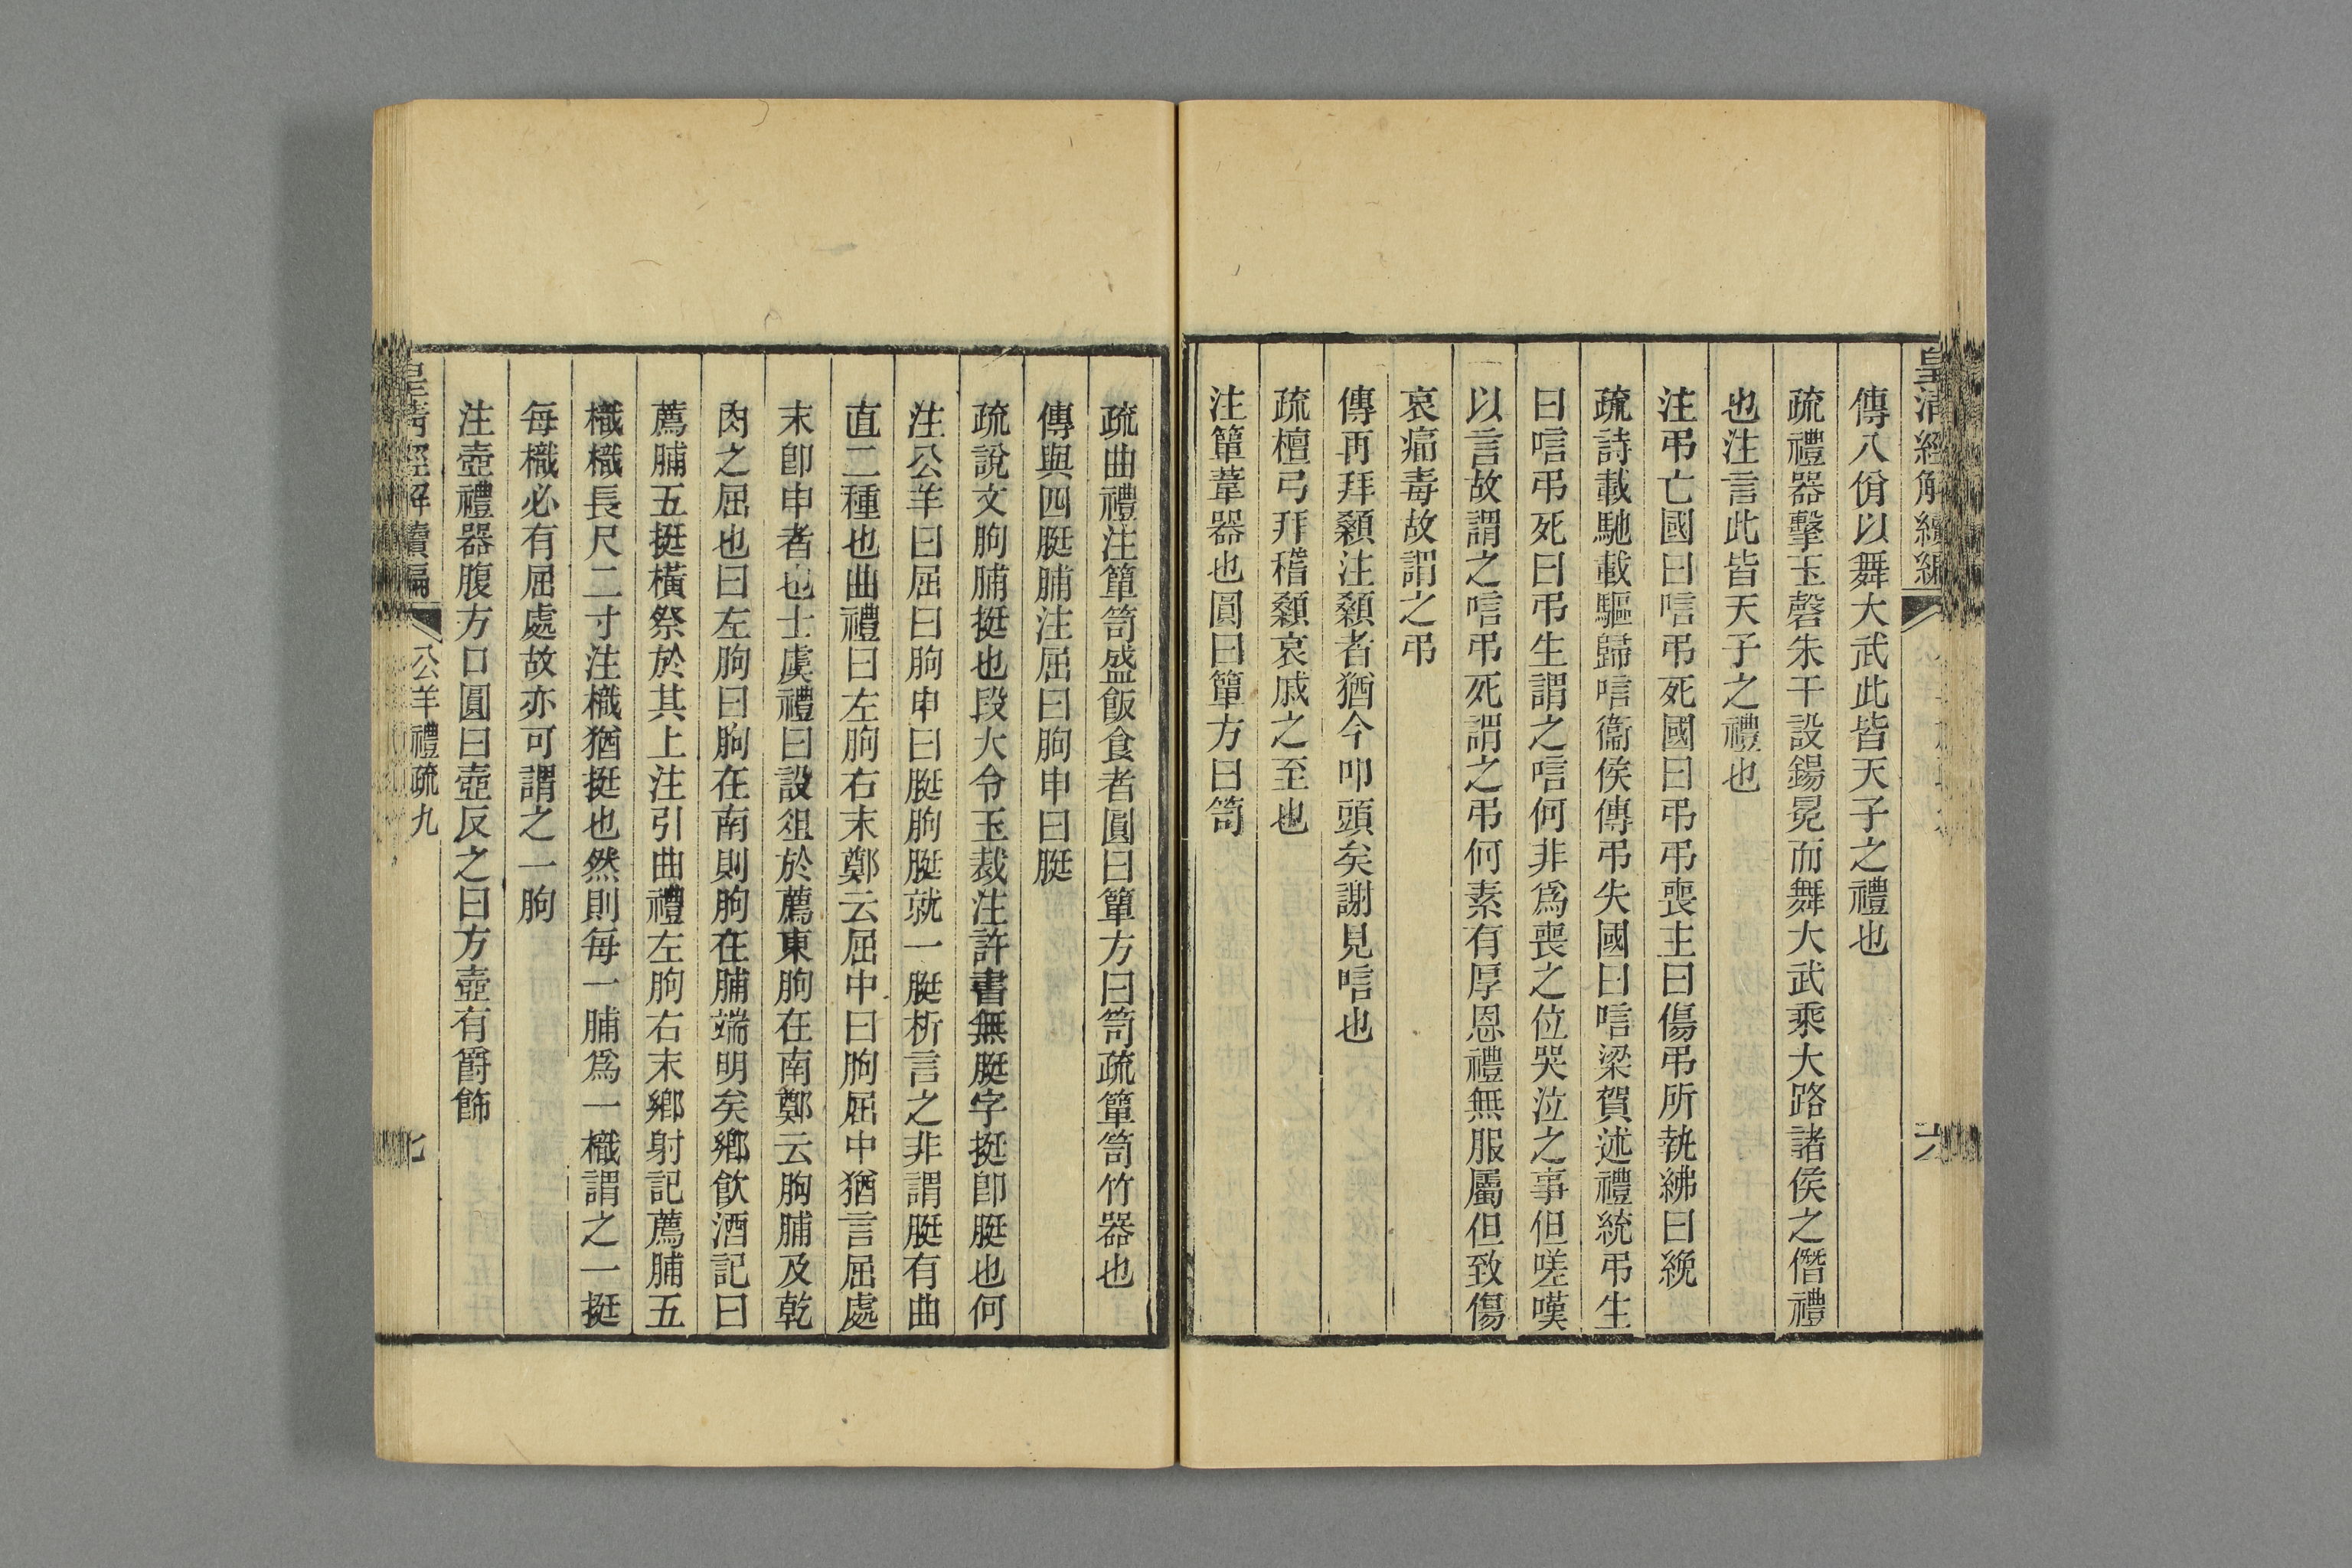 皇清經解續編
六
傳八佾以舞大武此皆天子之禮也
疏禮器擊玉磬朱干設鍚冕而舞大武乘大路諸侯之僭禮
也注言此皆天子之禮也
注弔亡國曰唁弔死國曰弔弔喪主曰傷弔所執紼曰綩
疏詩載馳載驅歸唁衞侯傳弔失國曰唁梁賀述禮統弔生
曰唁弔死曰弔生謂之唁何非爲喪之位哭泣之事但嗟嘆
以言故謂之唁弔死謂之弔何素有厚恩禮無服屬但致傷
哀痛毒故謂之弔
傳再拜顙注顙者猶今叩頭矣謝見唁也
疏檀弓拜稽顙哀戚之至也
注簞葦器也圓曰簞方曰笥
疏曲禮注簞笥盛飯食者圓曰簞方曰笥疏簞笥竹器也
傳與四脡脯注屈曰朐申曰脡
疏說文朐脯挺也段大令玉裁注許書無脡字挺卽脡也何
注公羊曰屈曰朐申曰脡朐脡就一脡析言之非謂脡有曲
直二種也曲禮曰左朐右末鄭云屈中曰朐屈中猶言屈處
末卽申者也士虞禮曰設俎於薦東朐在南鄭云朐脯及乾
肉之屈也曰左朐曰朐在南則朐在脯端明矣鄉飮酒記曰
薦脯五挺橫祭於其上注引曲禮左朐右末鄉射記薦脯五
樴樴長尺二寸注樴猶挺也然則每一脯爲一樴謂之一挺
每樴必有屈處故亦可謂之一朐
注壺禮器腹方口圓曰壺反之曰方壺有爵飾
皇清經解續編
公羊禮疏九
七